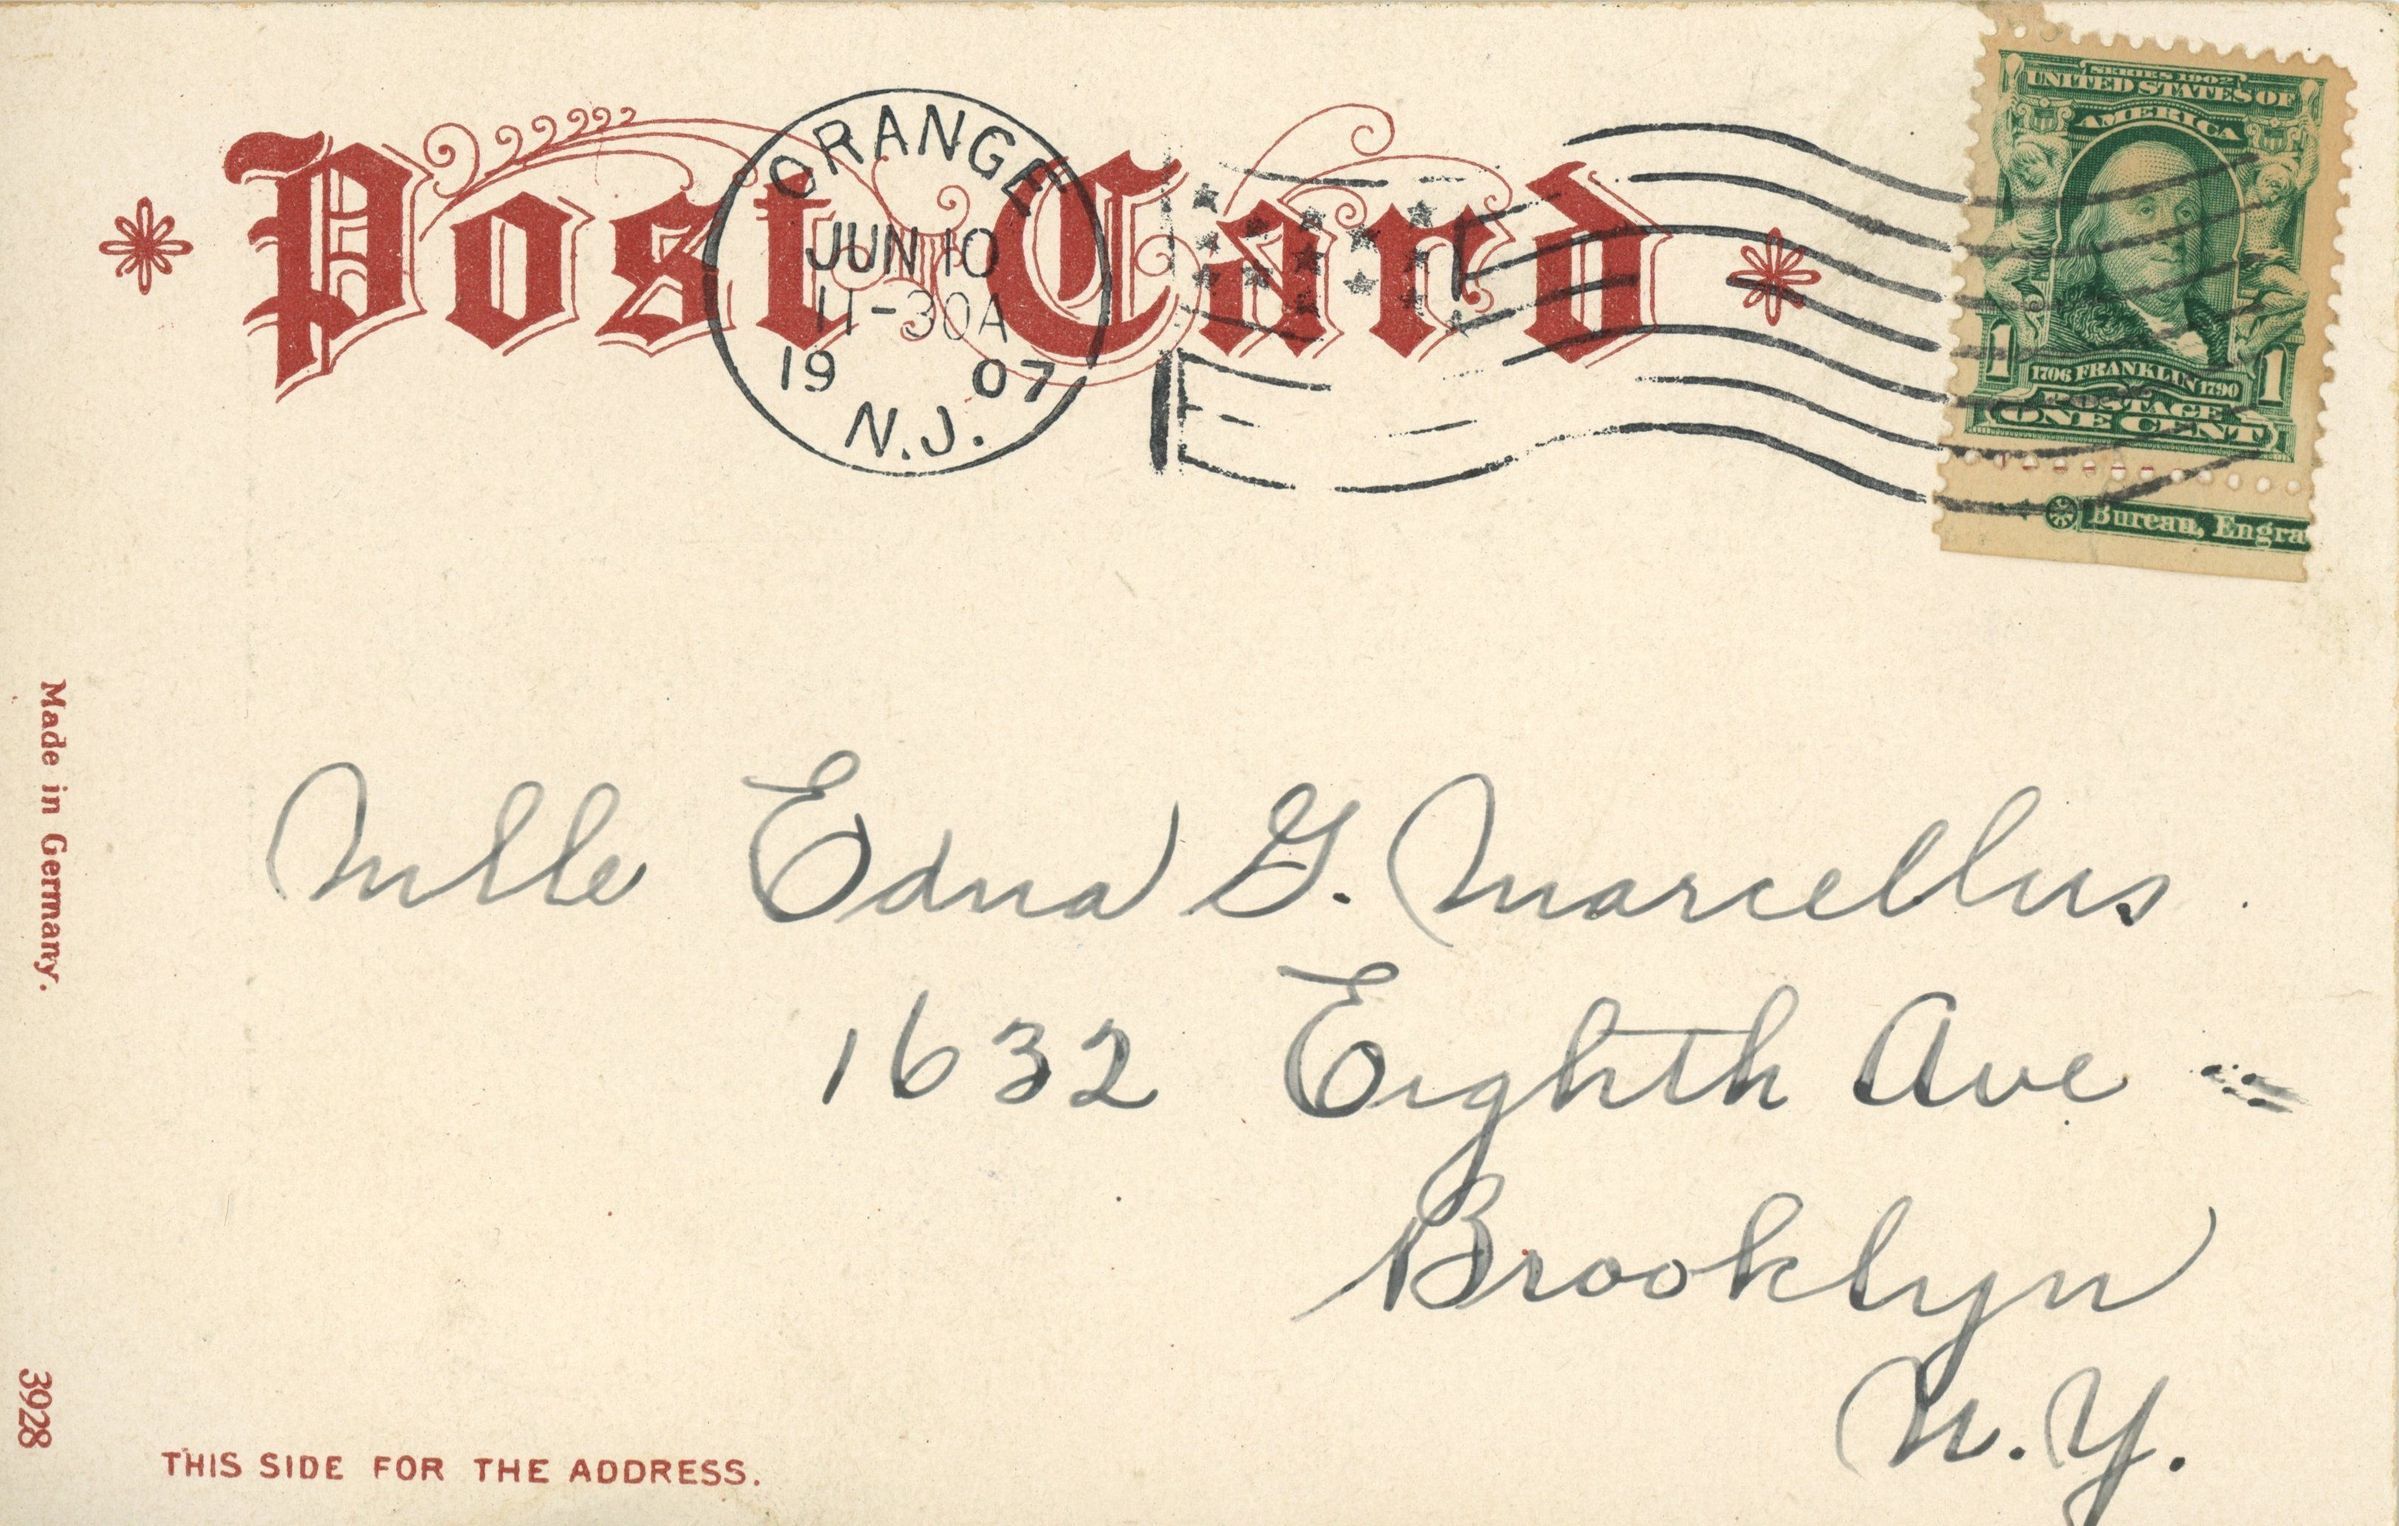 Post Card
ORANGE
JUN 10
11-30A
19 07
N.J.
SERIES 1902
UNITED STATES OF
AMERICA
1 1706 FRANKLIN 1790 1
POSTAGE
ONE CENT
Bureau, Engra
Made in Germany.
Mlle Edna G. Marcellus
1632 Eighth Ave
Brooklyn
N.Y.
3928
THIS SIDE FOR THE ADDRESS.